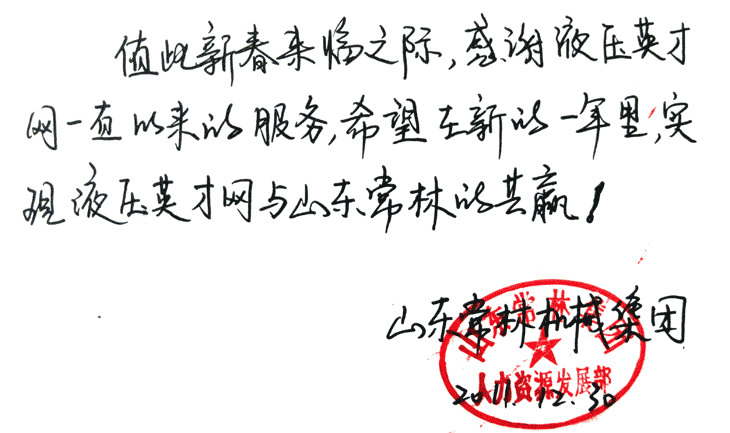 值此新春来临之际,感谢液压英才
网一直以来的服务,希望在新的一年里,实
现液压英才网与山东常林的共赢!
山东常林机械集团
山东常林集团
人力资源发展部
2011.12.30